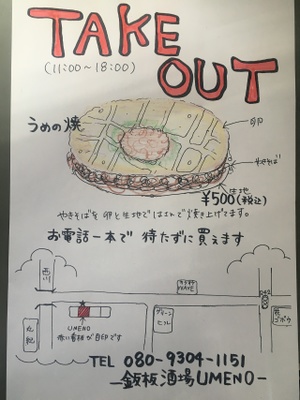 TAKE
OUT
(11:00～18:00)
うめの焼
卵
やきそば
生地
¥500(税込)
やきそばを卵と生地ではさんで焼き上げてます。
お電話一本で 待たずに買えます
西川
UMENO
赤い看板が目印です
グリーンヒル
TEL 080-9304-1151
－鉄板酒場UMENO－